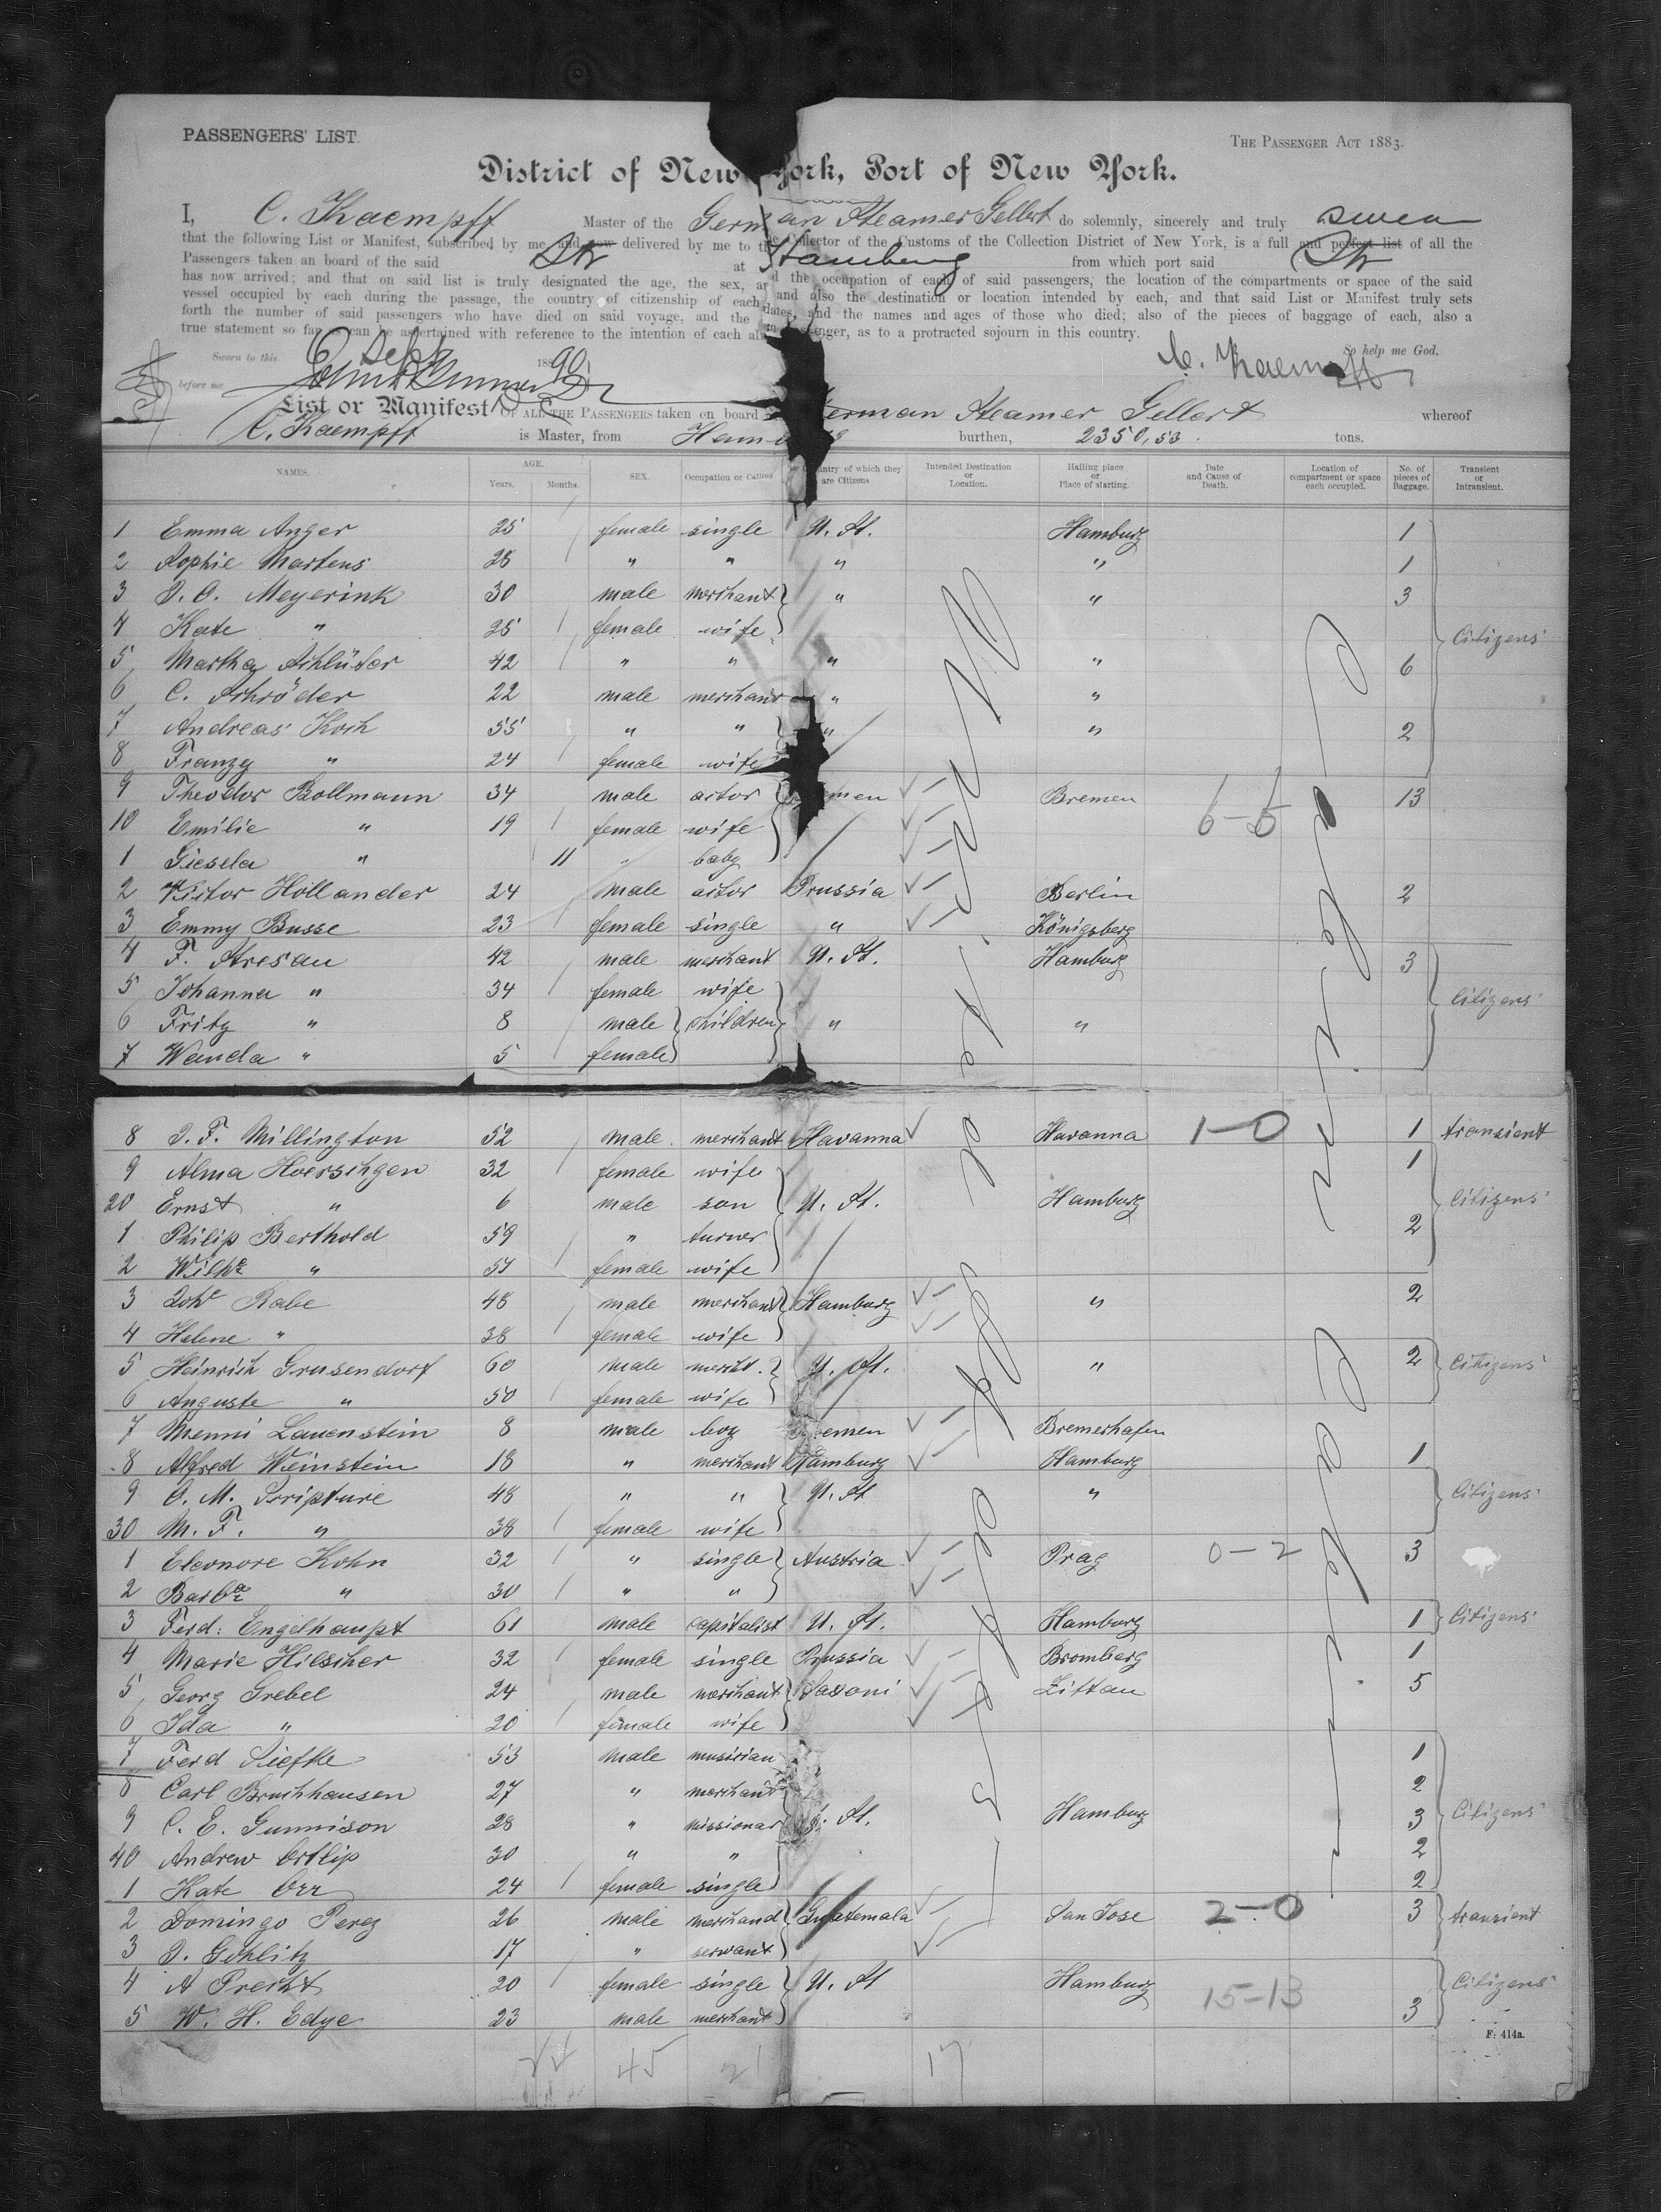 PASSENGERS' LIST.
THE PASSENGER ACT 1883.
District of New York, Port of New York.
I, C. Kaempff Master of the German Steamer Gellert do solemnly, sincerely and truly swear
that the following List or Manifest, subscribed by me and now delivered by me to the Collector of the Customs of the Collection District of New York, is a full and perfect list of all the
Passengers taken on board of the said Str at Hamburg from which port said Str
has now arrived; and that on said list is truly designated the age, the sex, and the occupation of each of said passengers; the location of the compartments or space of the said
vessel occupied by each during the passage, the country of citizenship of each, and also the destination or location intended by each, and that said List or Manifest truly sets
forth the number of said passengers who have died on said voyage, and the dates, and the names and ages of those who died; also of the pieces of baggage of each, also a
true statement so far as can be ascertained with reference to the intention of each alien passenger, as to a protracted sojourn in this country.
Sworn to this 6 Sept 1890 So help me God.
before me C. Kaempff
List or Manifest OF ALL THE PASSENGERS taken on board German Steamer Gellert whereof
C. Kaempff is Master, from Hamburg burthen, 2350,53. tons.
NAMES. AGE. Years. Months. SEX. Occupation or Calling The Country of which they are Citizens Intended Destination or Location. Hailing place or Place of starting. Date and Cause of Death. Location of compartment or space each occupied. No. of pieces of Baggage. Transient or Intransient.
1 Emma Anger 25 female single U. St. Hamburg 1
2 Sophie Martens 28 " " " " 1
3 J. O. Meyerink 30 male merchant " " 3
4 Kate " 25 female wife Citizens
5 Martha Schlüter 42 " " " " 6
6 C. Schröder 22 male merchant " "
7 Andreas Koch 55 " " " " 2
8 Franzy " 24 female wife
9 Theodor Bollmann 34 male actor Bremen Bremen 6-5 13
10 Emilie " 19 female wife
1 Giesela " 11 " baby
2 Victor Hollander 24 male actor Prussia Berlin 2
3 Emmy Busse 23 female single " Königsberg
4 F. Stresau 42 male merchant U. St. Hamburg 3
5 Johanna " 34 female wife Citizens
6 Fritz " 8 male children " "
7 Wanda " 5 female
8 J. F. Millington 52 male merchant Havanna Havanna 1-0 1 transient
9 Alma Hoerschgen 32 female wife 1
20 Ernst " 6 male son U. St. Hamburg Citizens
1 Philip Berthold 59 " turner 2
2 Wilhe " 57 female wife
3 Johs Rabe 48 male merchant Hamburg " 2
4 Helene " 38 female wife
5 Heinrich Grusendorf 60 male mercht. U. St. " 2 Citizens
6 Auguste " 50 female wife
7 Menni Lauenstein 8 male boy Bremen Bremerhafen
8 Alfred Weinstein 18 " merchant Hamburg Hamburg 1
9 O. M. Scripture 48 " " U. St " Citizens
30 M. F. " 38 female wife
1 Eleonore Kohn 32 " single Austria Prag 0-2 3
2 Barba " 30 " "
3 Ferd: Engelhaupt 61 male capitalist U. St. Hamburg 1 Citizens
4 Marie Hilscher 32 female single Prussia Bromberg 1
5 Georg Grebel 24 male merchant Saxoni Zittau 5
6 Ida " 20 female wife
7 Ferd Siefke 53 male musician 1
8 Carl Bruchhausen 27 " merchant 2
9 C. E. Gunnison 28 " missionar U. St. Hamburg 3 Citizens
40 Andrew Ortlip 30 " " 2
1 Kate Orr 24 female single 2
2 Domingo Perez 26 male merchand Guatemala San Jose 2-0 3 transient
3 J. Gohlitz 17 " servant
4 A Precht 20 female single U. St Hamburg 15-13 Citizens
5 W. H. Edye 23 male merchant 3
F. 414a.
45 21 17